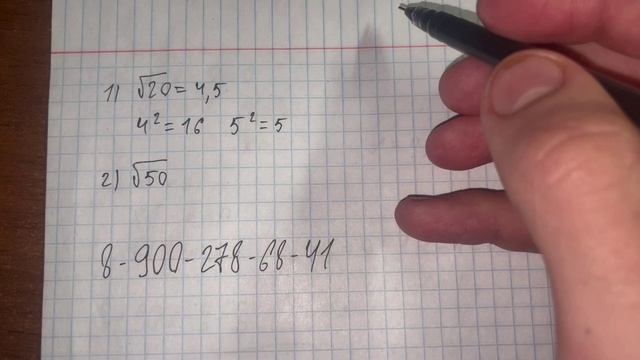 1) √20 = 4,5
4² = 16 5² = 5
2) √50
8-900-278-68-41